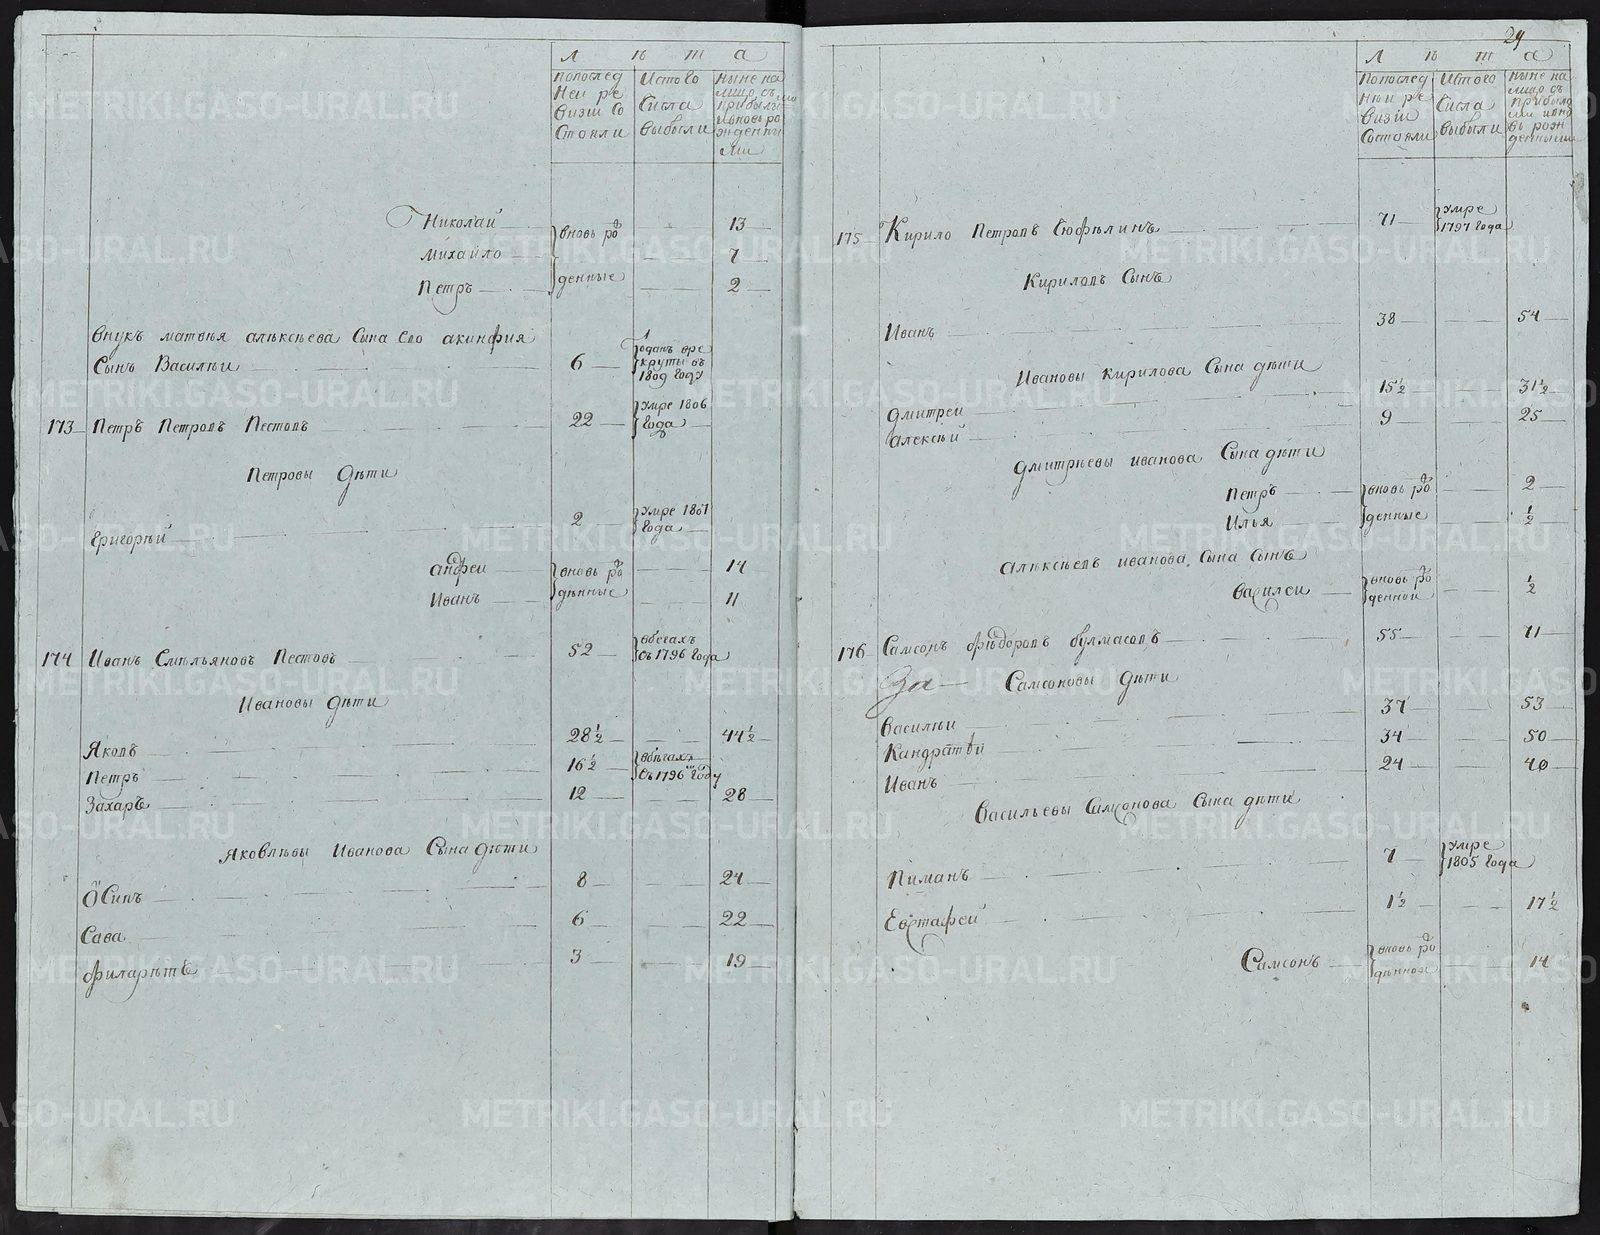 Л ѣ т а
попослед ней ре визiи со стояли
Истого Числа выбыли
ныне на лицо съ прибылы ми ивновь ро жденны ми
Николай вновь ро 13
Михайло 7
Петръ денные 2
Внукъ матвея алѣксѣева Сына Ево акинфия
Сынъ Василѣи 6 отданъ вре круты въ 1809 году
173 Петръ Петровъ Пестовъ 22 умре 1806 года
Петровы дѣти
Григорѣй 2 умре 1801 года
андреи вновь ро 14
Иванъ дѣнные 11
174 Иванъ Емѣльяновъ Пестовъ 52 вбегахъ съ 1796 года
Ивановы дѣти
Яковъ 28½ 44½
Петръ 16½ вбѣгахъ съ 1796 году
Захаръ 12 28
Яковлѣвы Иванова Сына дѣти
Осипъ 8 24
Сава 6 22
филарѣтъ 3 19
29
Л ѣ т а
Попослед нѣй ре визiи Состояли
Истого Числа выбыли
ныне на лицо съ прибылы ми ивно вь рож денными
175 Кирило Петровъ 71 умре 1797 года
Кириловъ Сынъ
Иванъ 38 54
Ивановы кирилова Сына дѣти
дмитреи 15½ 31½
алексѣй 9 25
дмитрѣевы иванова Сына дѣти
Петръ вновь ро 2
Илья денные ½
алѣксѣевъ иванова Сына Сынъ
Василеи вновь ро денной ½
176 Самсонъ фѣдоровъ булмасовъ 55 71
За Самсоновы дѣти
Василѣи 37 53
Кандратѣй 34 50
Иванъ 24 40
Васильевы Самсонова Сына дѣти
Пиманъ 7 умре 1805 года
Евстафеи 1½ 17½
Самсонъ вновь ро дѣнной 14
METRIKI.GASO-URAL.RU